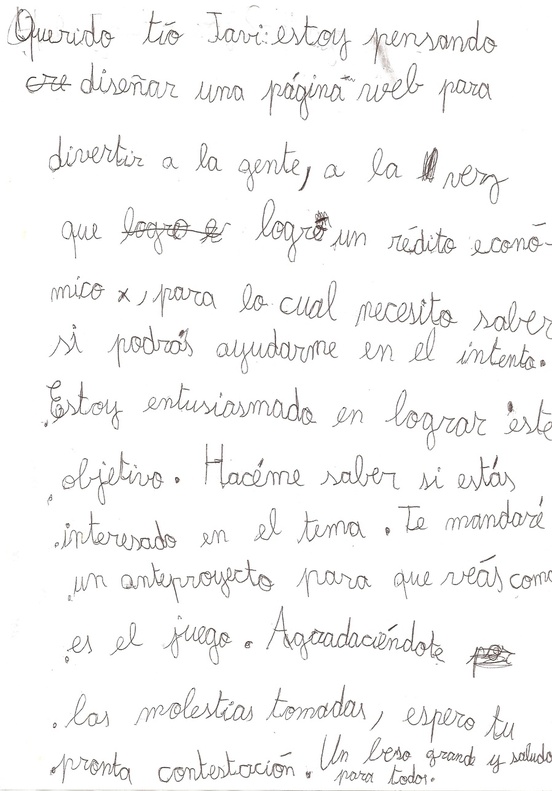 Querido tío Javi: estoy pensando
cre diseñar una página web para
divertir a la gente, a la verz
que logro e logro un rédito econó-
mico x, para lo cual necesito saber
si podrás ayudarme en el intento.
Estoy entusiasmado en lograr éste
objetivo. Hacéme saber si estás
interesado en el tema. Te mandaré
un anteproyecto para que veás como
es el juego. Agradaciéndote por
las molestias tomadas, espero tu
pronta contestación. Un beso grande y saludo
para todos.